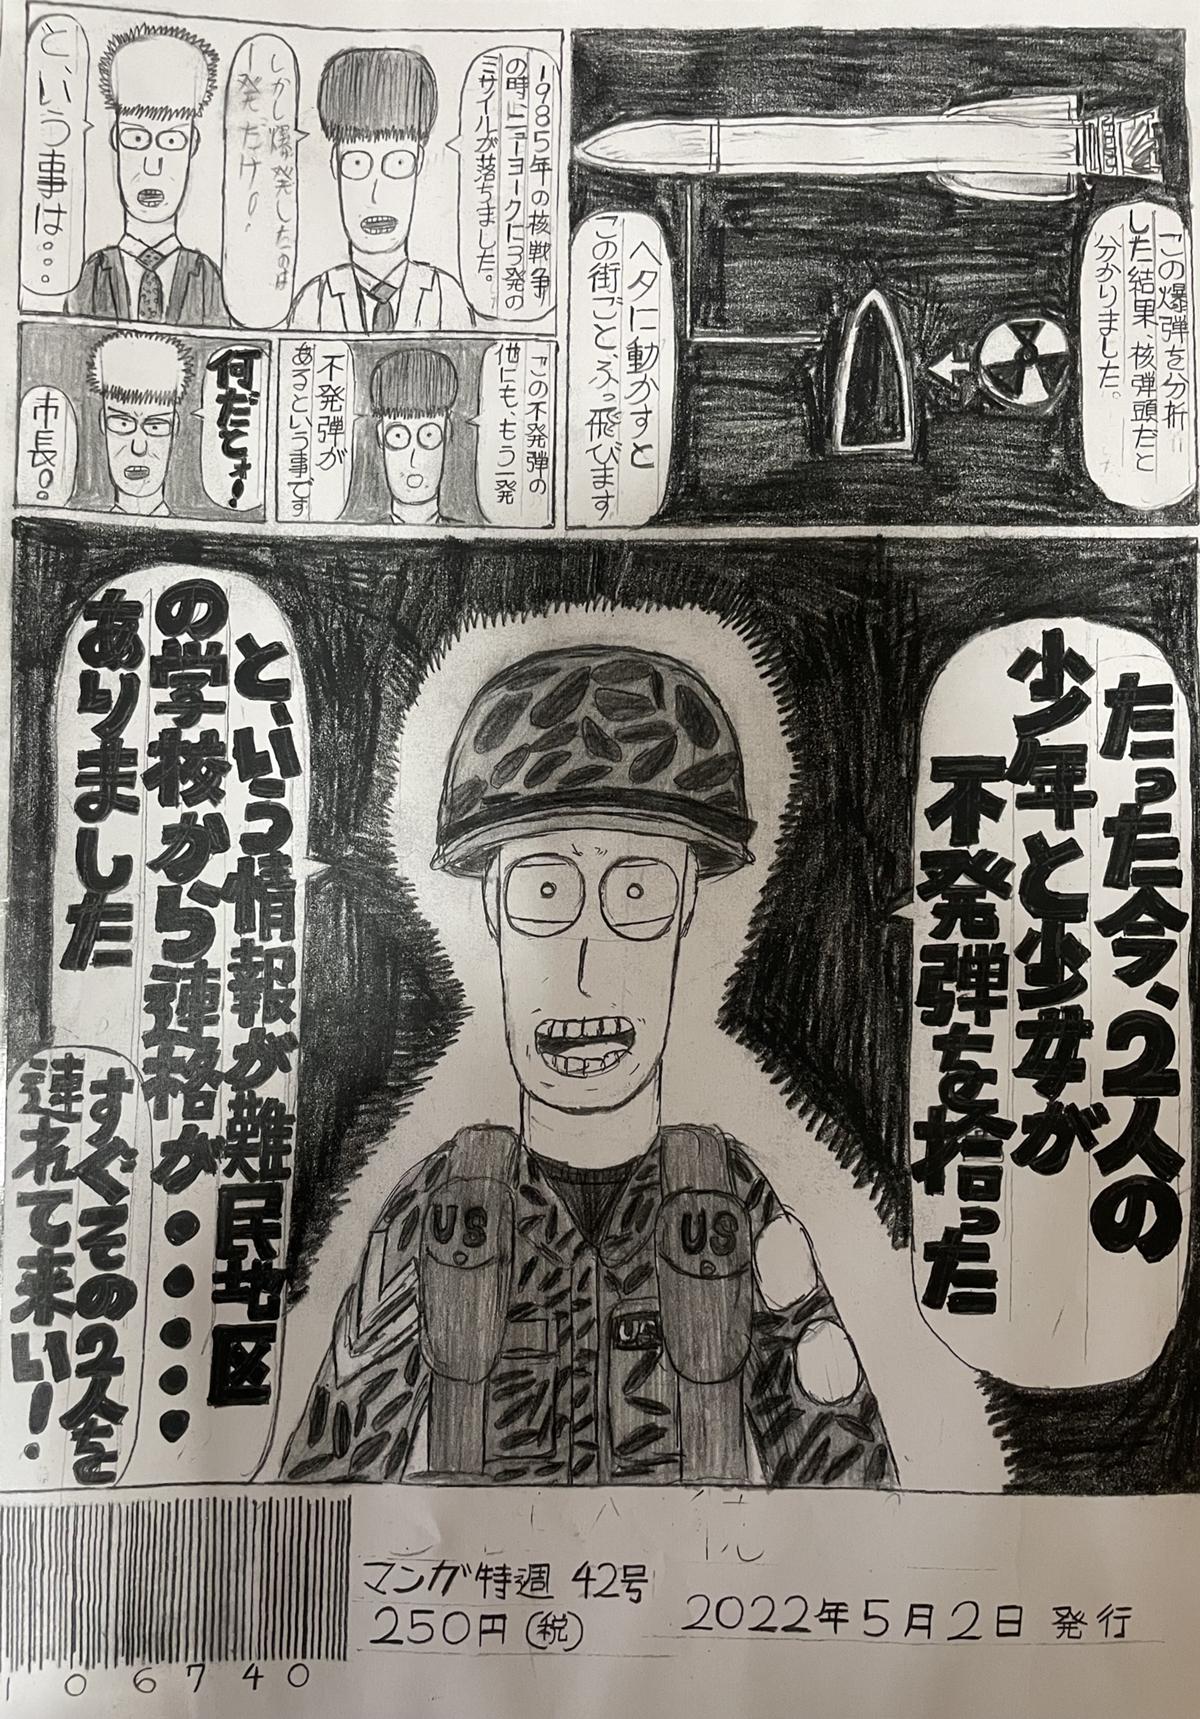 この爆弾を分析
した結果、核弾頭だと
分かりました。
ヘタに動かすと
この街ごと、ふっ飛びます
1985年の核戦争
の時にニューヨークに3発の
ミサイルが落ちました。
しかし爆発したのは
1発だけ。
と、いう事は。。。
この不発弾の
他にも、もう一発
不発弾が
あるという事です
何だとォ!
市長。
たった今、2人の
少年と少女が
不発弾を拾った
と、いう情報が難民地区
の学校から連絡が・・・・・
ありました
すぐその2人を
連れて来い!
US
US
US
マンガ特週 42号
250円(税)
2022年5月2日 発行
106740